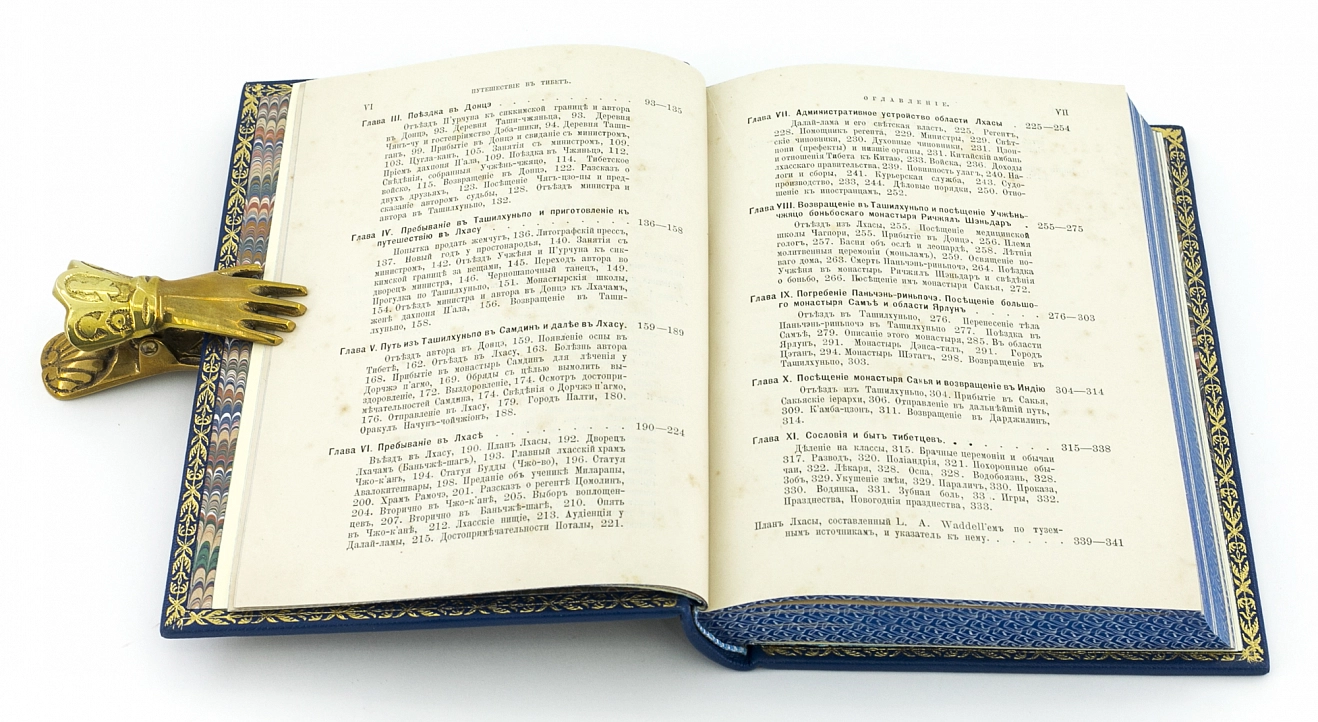 ПУТЕШЕСТВІЕ ВЪ ТИБЕТЪ.
VI
Глава III. Поѣздка въ Донцэ . . . . . . . . . . 93—135
Отъѣздъ П'урчуна къ сиккимской границѣ и автора
въ Донцэ, 93. Деревня Таши-чжяньца, 93. Деревня
Чянъ-чу и гостепріимство Дэба-шики, 94. Деревня Таши-
ганъ, 99. Прибытіе въ Донцэ и свиданіе съ министромъ,
103. Цугла-канъ, 105. Занятія съ министромъ, 109.
Пріемъ дахпоня П'ала, 109. Поѣздка въ Чжяньцэ, 112.
Свѣдѣнія, собранныя Учжѣнь-чжяцо, 114. Тибетское
войско, 115. Возвращеніе въ Донцэ, 122. Разсказъ о
двухъ друзьяхъ, 123. Посѣщеніе Чягъ-цзо-пы и пред-
сказаніе авторомъ судьбы, 128. Отъѣздъ министра и
автора въ Ташилхуньпо, 132.
Глава IV. Пребываніе въ Ташилхуньпо и приготовленіе къ
путешествію въ Лхасу . . . . . . . . . . 136—158
Попытка продать жемчугъ, 136. Литографскій прессъ,
137. Новый годъ у простонародья, 140. Занятія съ
министромъ, 142. Отъѣздъ Учжѣня и П'урчуна къ сик-
кимской границѣ за вещами, 145. Переходъ автора во
дворецъ министра, 146. Черношапочный танецъ, 149.
Прогулка по Ташилхуньпо, 151. Монастырскія школы,
154. Отъѣздъ министра и автора въ Донцэ къ Лхачамъ,
женѣ дахпоня П'ала, 156. Возвращеніе въ Таши-
лхуньпо, 158.
Глава V. Путь изъ Ташилхуньпо въ Самдинъ и далѣе въ Лхасу. 159—189
Отъѣздъ автора въ Донцэ, 159. Появленіе оспы въ
Тибетѣ, 162. Отъѣздъ въ Лхасу, 163. Болѣзнь автора
168. Прибытіе въ монастырь Самдинъ для лѣченія у
Дорчжэ п'агмо, 169. Обряды съ цѣлью вымолить вы-
здоровленіе, 172. Выздоровленіе, 174. Осмотръ достопри-
мѣчательностей Самдина, 174. Свѣдѣнія о Дорчжэ п'агмо,
176. Отправленіе въ Лхасу, 179. Городъ Палти, 180.
Оракулъ Начунъ-чойчжіонъ, 188.
Глава VI. Пребываніе въ Лхасѣ . . . . . . . . . . 190—224
Въѣздъ въ Лхасу, 190. Планъ Лхасы, 192. Дворецъ
Лхачамъ (Баньчжѣ-шагъ), 193. Главный лхасскій храмъ
Чжо-к'анъ, 194. Статуя Будды (Чжо-во), 196. Статуя
Авалокитешвары, 198. Преданіе объ ученикѣ Миларапы,
200. Храмъ Рамочэ, 201. Разсказъ о регентѣ Цомолинъ,
204. Вторично въ Чжо-к'анѣ, 205. Выборъ воплощен-
цевъ, 207. Вторично въ Баньчжѣ-шагѣ, 210. Опять
въ Чжо-к'анѣ, 212. Лхасскіе нищіе, 213. Аудіенція у
Далай-ламы, 215. Достопримѣчательности Поталы, 221.
ОГЛАВЛЕНІЕ.
VII
Глава VII. Административное устройство области Лхасы 225—254
Далай-лама и его свѣтская власть, 225. Регентъ,
228. Помощникъ регента, 229. Министры, 229. Свѣт-
скіе чиновники, 230. Духовные чиновники, 231. Цзон-
пони (префекты) и низшіе органы, 231. Китайскій амбань
и отношенія Тибета къ Китаю, 233. Войска, 236. Доходы
лхасскаго правительства, 239. Повинность улагъ, 240. На-
логи и сборы, 241. Курьерская служба, 243. Судо-
производство, 233, 244. Дѣловые порядки, 250. Отно-
шеніе къ иностранцамъ, 252.
Глава VIII. Возвращеніе въ Ташилхуньпо и посѣщеніе Учжѣнь-
чжяцо боньбоскаго монастыря Ричжялъ Шэньдаръ . 255—275
Отъѣздъ изъ Лхасы, 255. Посѣщеніе медицинской
школы Чагпори, 255. Прибытіе въ Донцэ, 256. Племя
гологъ, 257. Басня объ ослѣ и леопардѣ, 258. Лѣтнія
молитвенныя церемоніи (моньламъ), 259. Освященіе но-
ваго дома, 263. Смерть Паньчэнь-риньпочэ, 264. Поѣздка
Учжѣня въ монастырь Ричжялъ Шэньдаръ и свѣдѣнія
о боньбо, 266. Посѣщеніе имъ монастыря Сакья, 272.
Глава IX. Погребеніе Паньчэнь-риньпочэ. Посѣщеніе большо-
го монастыря Самъѣ и области Ярлунъ . . . . . 276—303
Въ Ташилхуньпо, 276. Перенесеніе тѣла
Паньчэнь-риньпочэ въ Ташилхуньпо 277. Поѣздка въ
Самъѣ, 279. Описаніе этого монастыря, 285. Въ области
Ярлунъ, 291. Монастырь Дэнса-тилъ, 291. Городъ
Цэтанъ, 294. Монастырь Шэтагъ, 298. Возвращеніе въ
Ташилхуньпо, 303.
Глава X. Посѣщеніе монастыря Сакья и возвращеніе въ Индію 304—314
Отъѣздъ изъ Ташилхуньпо, 304. Прибытіе въ Сакья,
Сакьяскіе іерархи, 306. Отправленіе въ дальнѣйшій путь,
309. К'амба-цзонъ, 311. Возвращеніе въ Дарджилинъ,
314.
Глава XI. Сословія и бытъ тибетцевъ. . . . . . . . . 315—338
Дѣленіе на классы, 315. Брачныя церемоніи и обычаи
317. Разводъ, 320. Поліандрія, 321. Похоронные обы-
чаи, 322. Лѣкаря, 328. Оспа, 328. Водобоязнь, 328.
Зобъ, 329. Укушеніе змѣи, 329. Параличъ, 330. Проказа,
330. Водянка, 331. Зубная боль, 33 . Игры, 332.
Празднества, Новогоднія празднества, 333.
Планъ Лхасы, составленный L. A. Waddell'емъ по тузем-
нымъ источникамъ, и указатель къ нему. . . . . . 339—341